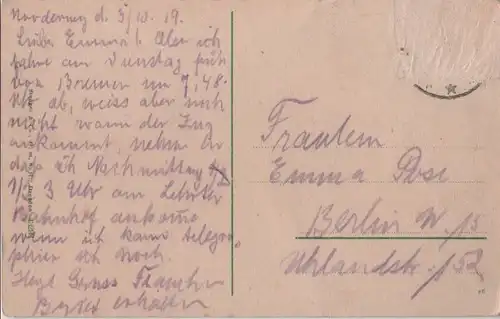 Norderney d. 3/10. 19.
Liebe Emma! Also ich
fahre am Dienstag früh
von Bremen um 7,48.
Uhr ab, weiss aber noch
nicht wann der Zug
ankommt, nehme an
dass ich Nachmittag
1/2 3 Uhr am Lehrter
Bahnhof ankomme
wenn ich kann telegra-
phier ich noch.
Herzl Gruss
erhalten
Fräulein
Emma Pose
Berlin W. 15
Uhlandstr. 152